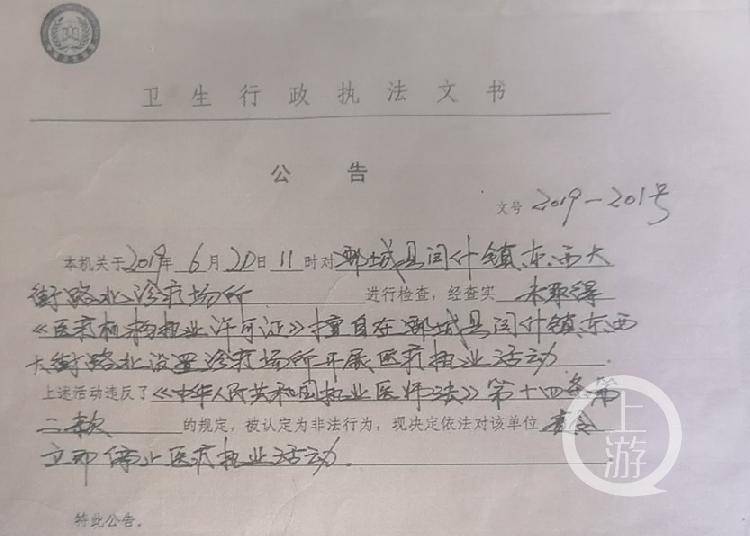 卫生行政执法文书
公告
文号 2019-201号
本机关于2019年6月20日11时对鄄城县闫什镇东西大
街路北诊疗场所 进行检查,经查实 未取得
《医疗机构执业许可证》擅自在鄄城县闫什镇东西
大街路北设置诊疗场所开展医疗执业活动
上述活动违反了《中华人民共和国执业医师法》第十四条第
二款 的规定,被认定为非法行为,现决定依法对该单位 责令
立即停止医疗执业活动.
特此公告。
上游